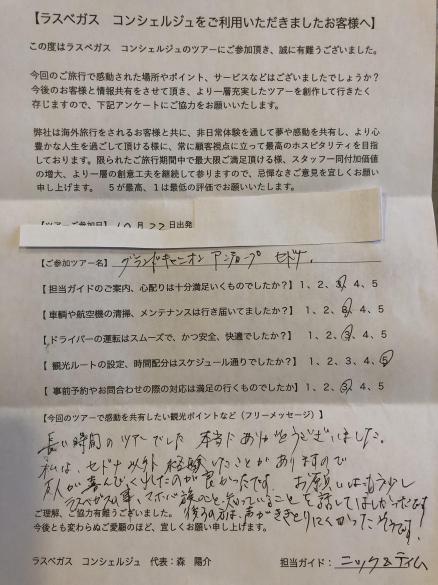 【ラスベガス　コンシェルジュをご利用いただきましたお客様へ】
この度はラスベガス　コンシェルジュのツアーにご参加頂き、誠に有難うございました。
今回のご旅行で感動された場所やポイント、サービスなどはございましたでしょうか？
今後のお客様と情報共有をさせて頂き、より一層充実したツアーを創作して行きたく
存じますので、下記アンケートにご協力をお願いいたします。
弊社は海外旅行をされるお客様と共に、非日常体験を通して夢や感動を共有し、より心
豊かな人生を過ごして頂ける様に、常に顧客視点に立って最高のホスピタリティを目指
しております。限られたご旅行期間中で最大限ご満足頂ける様、スタッフ一同付加価値
の増大、より一層の創意工夫を継続して参りますので、忌憚なきご意見を宜しくお願い
申し上げます。　5が最高、1は最低の評価でお願いします。
【ツアーご参加日】10月22日出発
【ご参加ツアー名】グランドキャニオン アンテロープ セドナ.
【担当ガイドのご案内、心配りは十分満足いくものでしたか？】1、2、3、4、5
【車輌や航空機の清掃、メンテナンスは行き届いてましたか？】1、2、3、4、5
【ドライバーの運転はスムーズで、かつ安全、快適でしたか？】1、2、3、4、5
【観光ルートの設定、時間配分はスケジュール通りでしたか？】1、2、3、4、5
【事前予約やお問合わせの際の対応は満足の行くものでしたか】1、2、3、4、5
【今回のツアーで感動を共有したい観光ポイントなど（フリーメッセージ）】
長い時間のツアーでした 本当にありがとうございました。
私は、セドナ以外経験いたことがありますので
友人が喜んでくれたのが良かったです。お願いはもう少し
ラスベガスの事、ナバホ族のこと知っていることを話してほしかったです
ご理解、ご協力有難うございました。後ろの方は、声がききとりにくかったそうです。
今後とも変わらぬご愛顧のほど、宜しくお願い申し上げます。
ラスベガス　コンシェルジュ　代表：森　陽介
担当ガイド：ニック&ティム